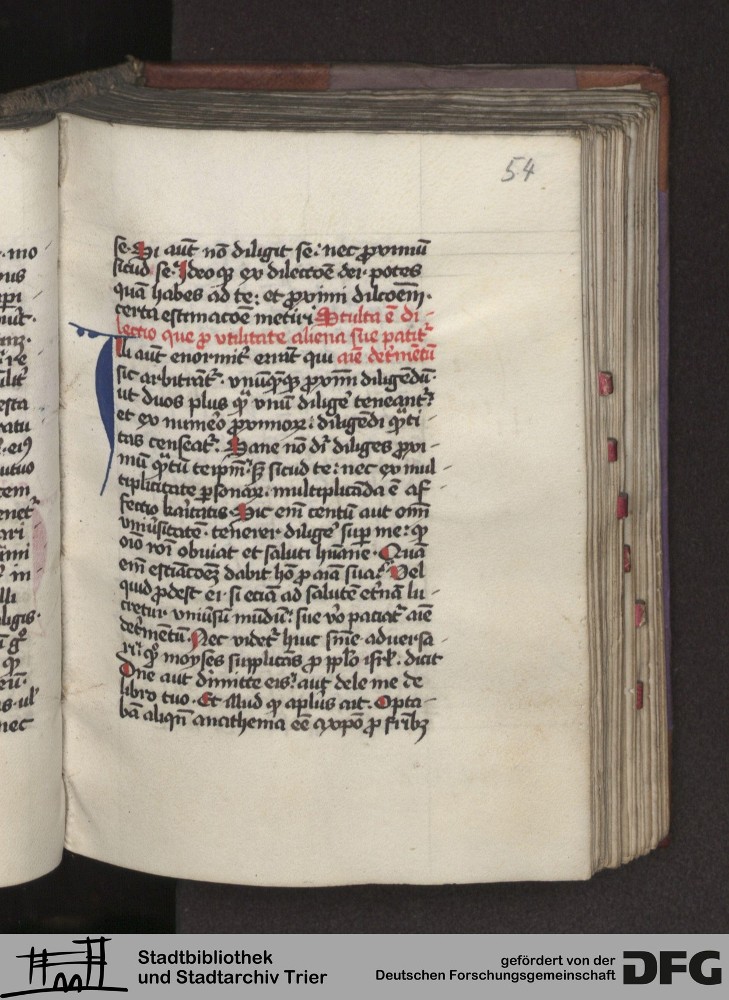 54
se. Si aūt nō diligit se: nec proximū
sicud se. Ideoqȝ ex dilectōe dei. potes
quā habes ad te: et proximi dilcōem.
certa estimacōe metiri Stulta ē di-
lectio que p utilitate aliena sue patit᷑
Illi aūt enormit᷑ errāt qui aīe det᷑mētū
sic arbitrāt᷑. vnūqȝqȝ proximū diligēdū.
ut duos plus qȝ vnū dilige᷑ teneant᷑:
et ex num̄o proximoꝝ: diligēdi qȝti-
tas censeat᷑. Sane nō dr̄ diliges proxi-
mū qȝtū teip̄m: sȝ sicud te: nec ex mul-
tiplicitate ꝑsonaꝝ. multiplicāda ē af-
fectio karitatis. Sic em̄ centū aut om̄
vniūsitatē. tenerer dilige᷑ suꝑ me: qȝ
oīo rōi obuiat et saluti hūane. Quā
em̄ 
 dabit hō p aīa sua: Vel
quid pdest ei. si eciā ad salutē et᷑nā lu-
cretur vniūsū mūdū: sue v̊o paciat᷑ aīe
det᷑mētū. Nec videt᷑ huic sn̄ie aduersa-
ri: qȝ moyses supplicās p pplo isrł. dicit
Dn̄e aut dimitte eis: aut dele me de
libro tuo. Et illud qȝ aplūs ait. Opta-
bā aliqn̄ anathema eē a xpo p fr̄ibȝ
Stadtbibliothek
und Stadtarchiv Trier
gefördert von der
Deutschen Forschungsgemeinschaft
DFG